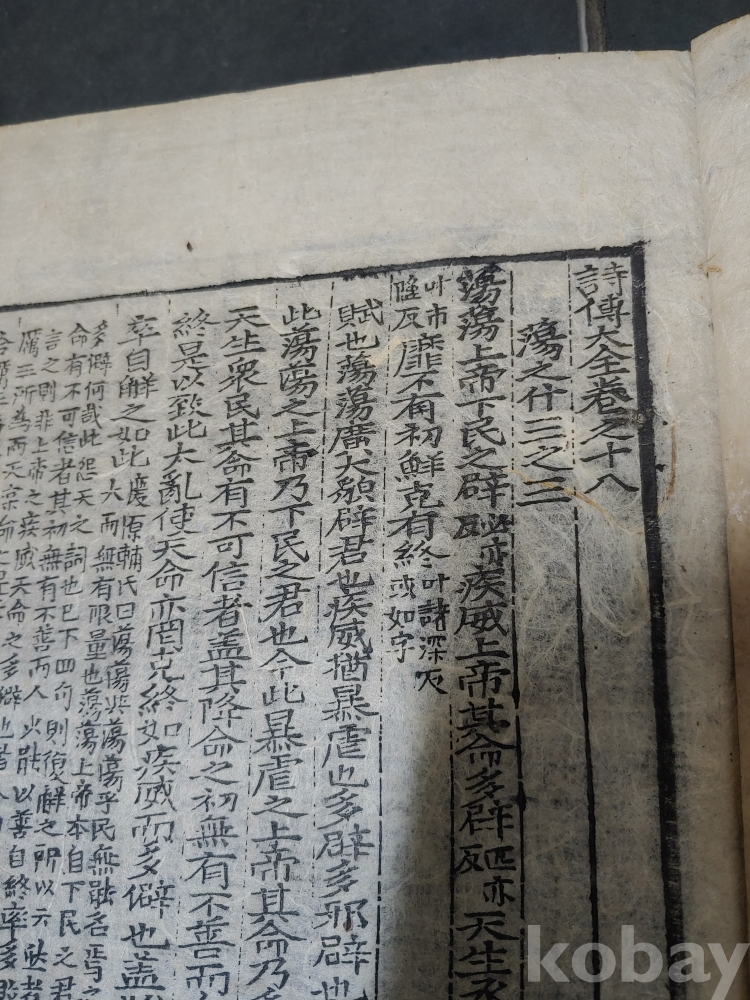 詩傳大全卷之十八
蕩之什三之三
蕩蕩上帝下民之辟必亦反疾威上帝其命多辟匹亦反天生烝
叶市隆反匪不有初鮮克有終叶諸深反或如字
賦也蕩蕩廣大貌辟君也疾威猶暴虐也多辟多邪辟也
此蕩蕩之上帝乃下民之君也今此暴虐之上帝其命乃多
天生衆民其命有不可信者盖其降命之初無有不善而
終是以致此大亂使天命亦罔克終如疾威而多僻也盖
率自解之如此慶源輔氏曰蕩蕩與蕩蕩乎民無能名焉之
大而無有限量也蕩蕩上帝本自下民之君
多僻何哉此怨天之詞也已下四句則復解之所以云然者
命有不可信者其初無有不善而人少能以善自終
言之則非上帝之疾威天命之多僻也
厲王所為而天
kobay